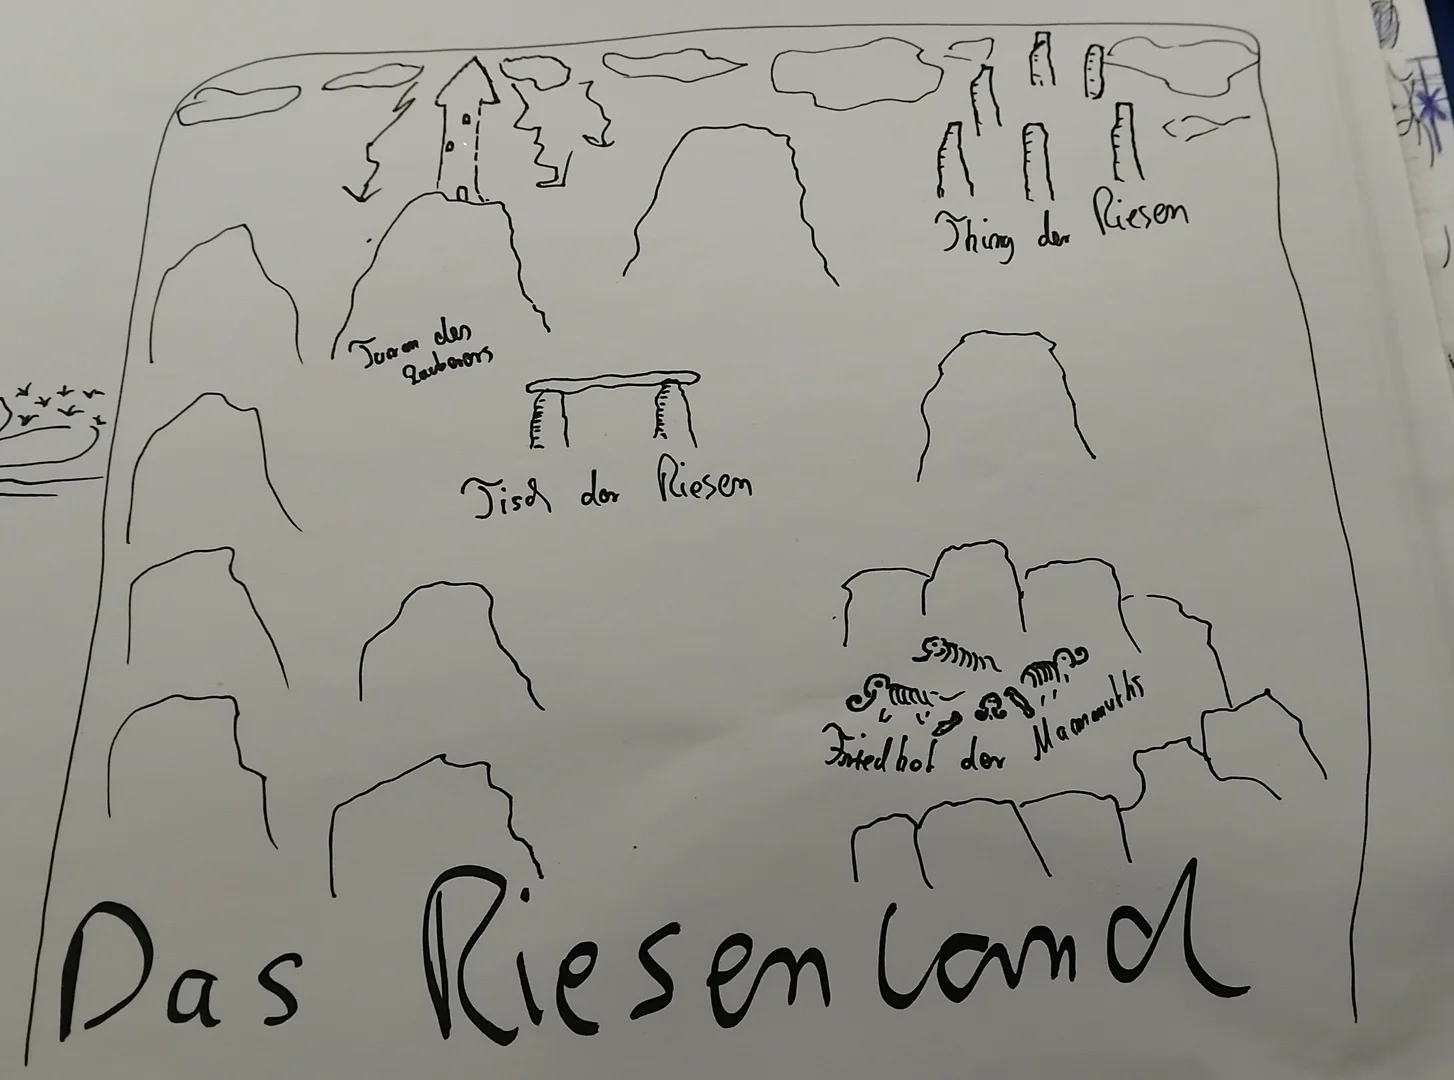 Thing der Riesen
Turm des
Zauberers
Tisch der Riesen
Friedhof der Mammuths
Das Riesenland